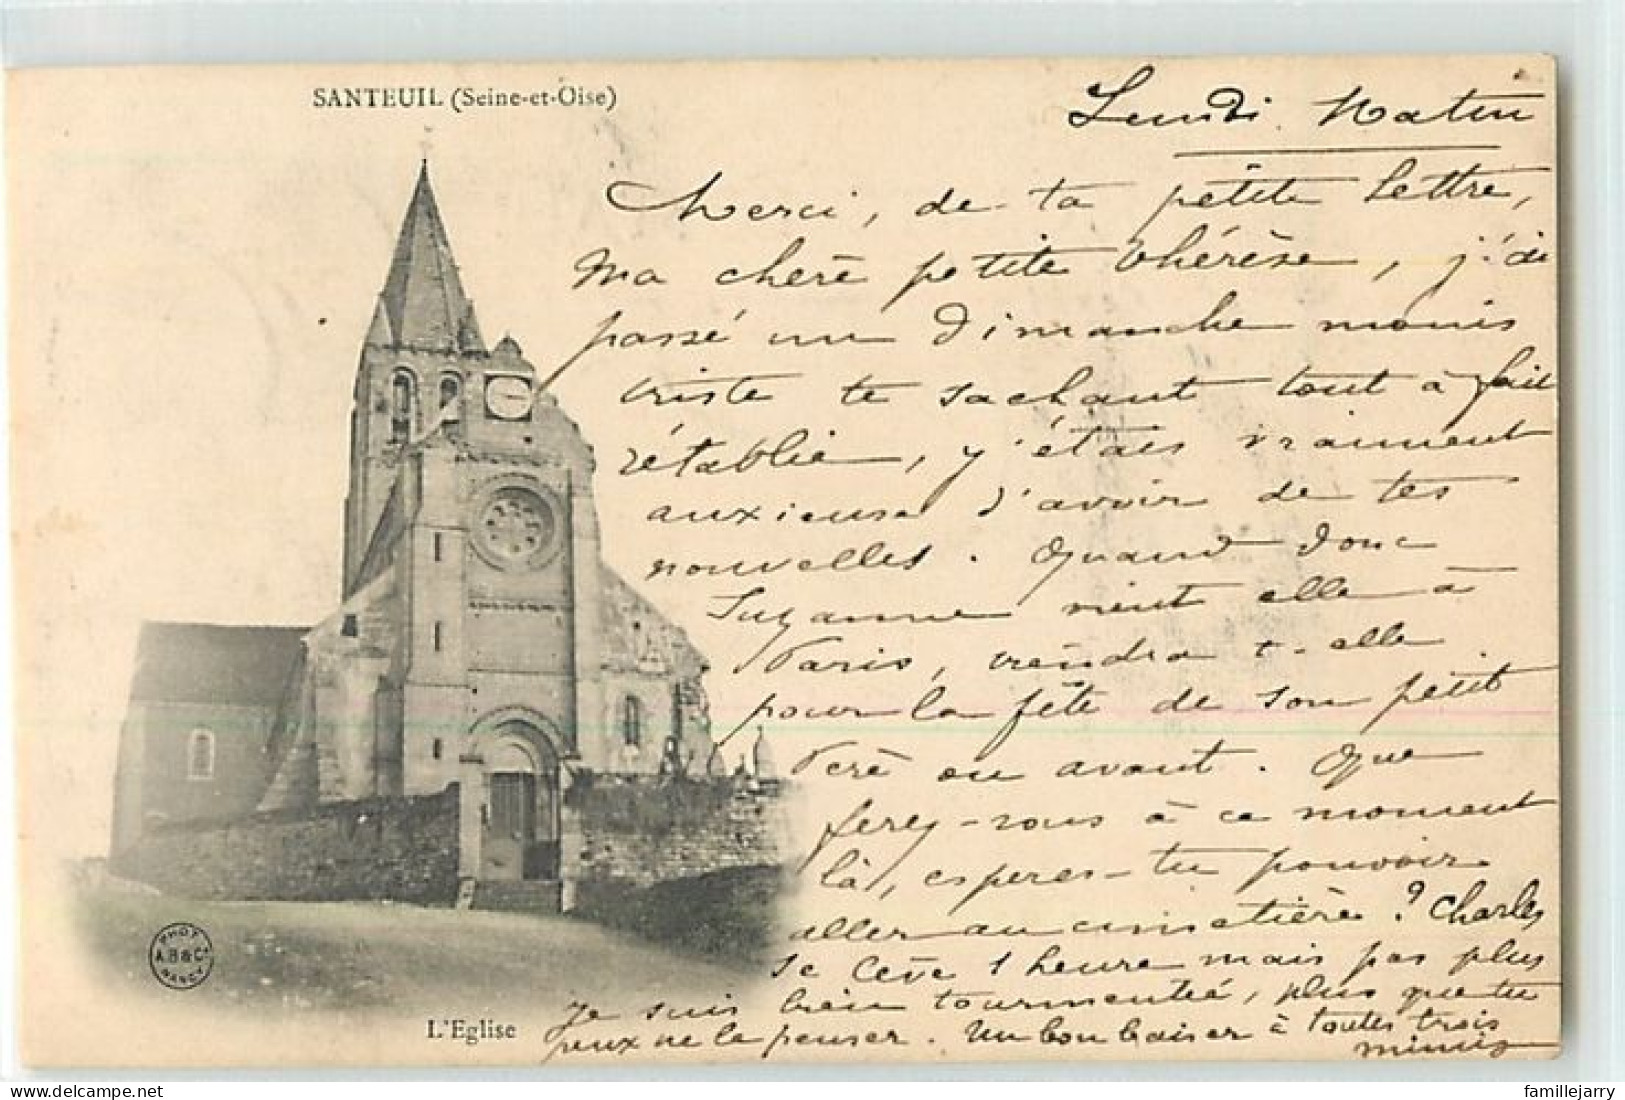 SANTEUIL (Seine-et-Oise)
Lundi Matin
Merci, de ta pétite lettre,
Ma chère petite Thérèse, j'ai
passé un Dimanche moins
triste te sachant tout à fait
rétablie, j'étais vraiment
anxieuse d'avoir de tes
nouvelles. Quand donc
Suzanne vient elle à
Paris, viendra t-elle
pour la fête de son petit
Père ou avant. Que
ferez-vous à ce moment
là, esperes-tu pouvoir
aller au cimetière ? Charles
se lève 1 heure mais pas plus
je suis bien tourmentée, plus que tu
peux ne le penser. Un bon baiser à toutes trois
PHOT
A.B & Cie
NANCY
L'Eglise
delcampe.net
famillejarry